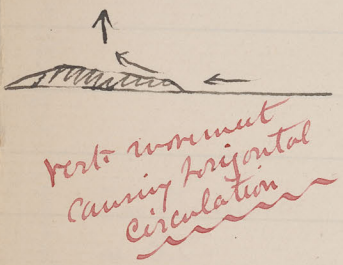 vert. movement
causing horizontal
circulation